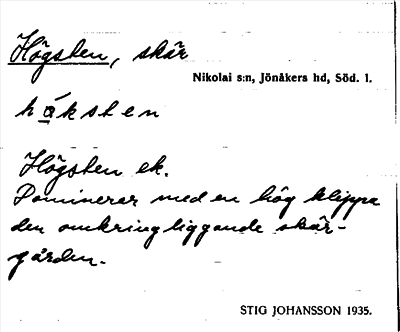 Högsten, skär
Nikolai s:n, Jönåkers hd, Söd. l.
håksten
Högsten ek.
Dominerar med en hög klippa
den omkringliggande skär-
gården.
STIG JOHANSSON 1935.